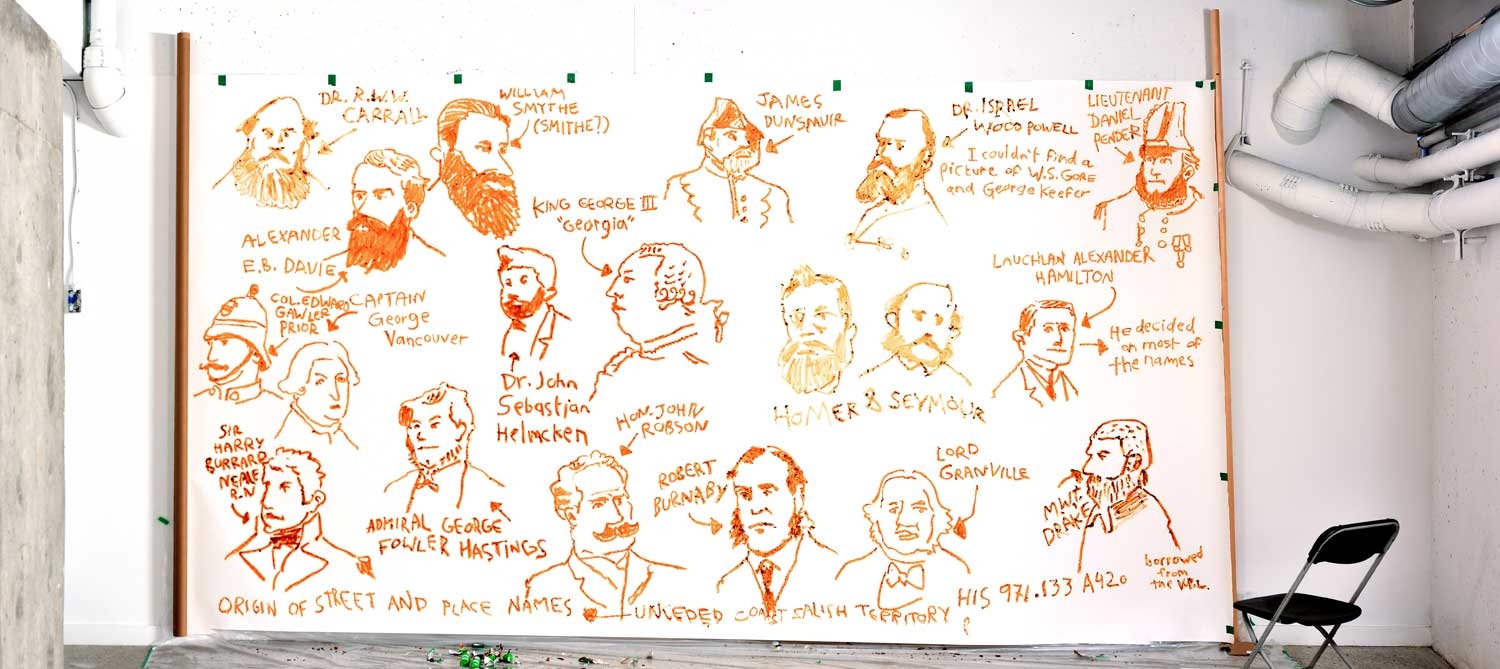 DR. R.W.W.
CARRALL
WILLIAM
SMYTHE
(SMITHE?)
JAMES
DUNSMUIR
DR. ISRAEL
WOOD POWELL
I couldn't find a
picture of W.S. GORE
and George Keefer
LIEUTENANT
DANIEL
PENDER
ALEXANDER
E.B. DAVIE
KING GEORGE III
"Georgia"
COL. EDWARD
GAWLER
PRIOR
CAPTAIN
George
Vancouver
Dr. John
Sebastian
Helmcken
HOMER & SEYMOUR
LAUCHLAN ALEXANDER
HAMILTON
He decided
on most of
the names
SIR
HARRY
BURRARD
NEALE
R.N
ADMIRAL GEORGE
FOWLER HASTINGS
HON. JOHN
ROBSON
ROBERT
BURNABY
LORD
GRANVILLE
M.W.T.
DRAKE
borrowed
from
the V.P.L.
ORIGIN OF STREET AND PLACE NAMES UNCEDED COAST SALISH TERRITORY HIS 971.133 A420